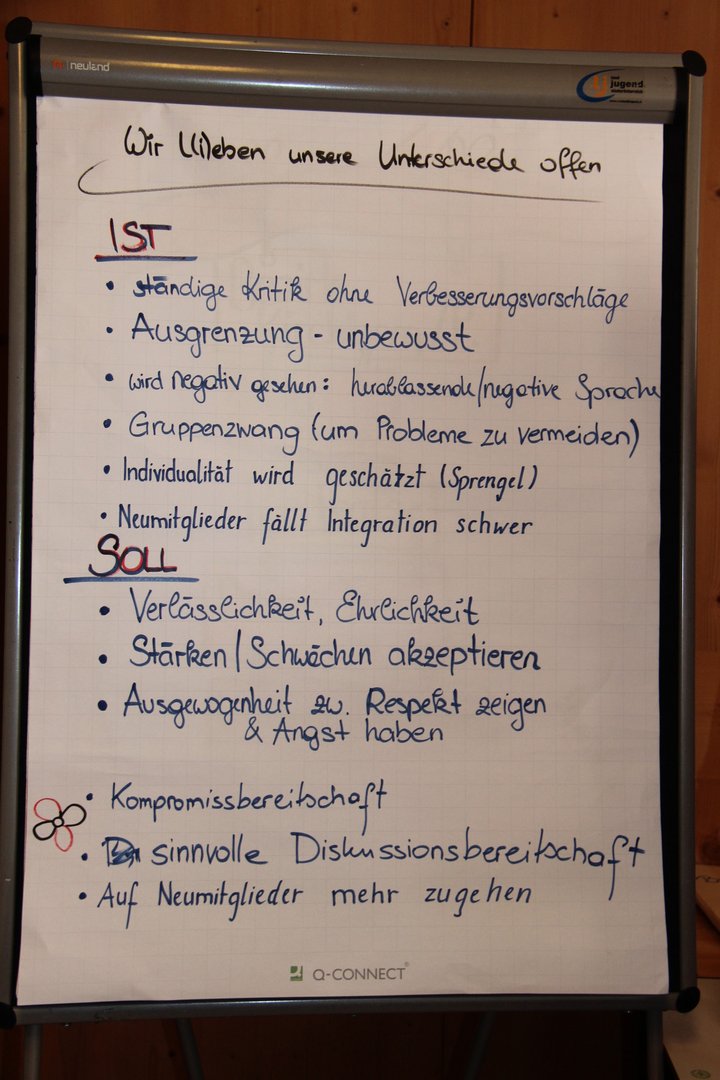 neuland
jugend
Wir L(i)eben unsere Unterschiede offen
IST
• ständige Kritik ohne Verbesserungsvorschläge
• Ausgrenzung - unbewusst
• wird negativ gesehen: herablassende/negative Sprache
• Gruppenzwang (um Probleme zu vermeiden)
• Individualität wird geschätzt (Sprengel)
• Neumitglieder fällt Integration schwer
SOLL
• Verlässlichkeit, Ehrlichkeit
• Stärken/Schwächen akzeptieren
• Ausgewogenheit zw. Respekt zeigen
& Angst haben
• Kompromissbereitschaft
• sinnvolle Diskussionsbereitschaft
• Auf Neumitglieder mehr zugehen
Q-CONNECT®